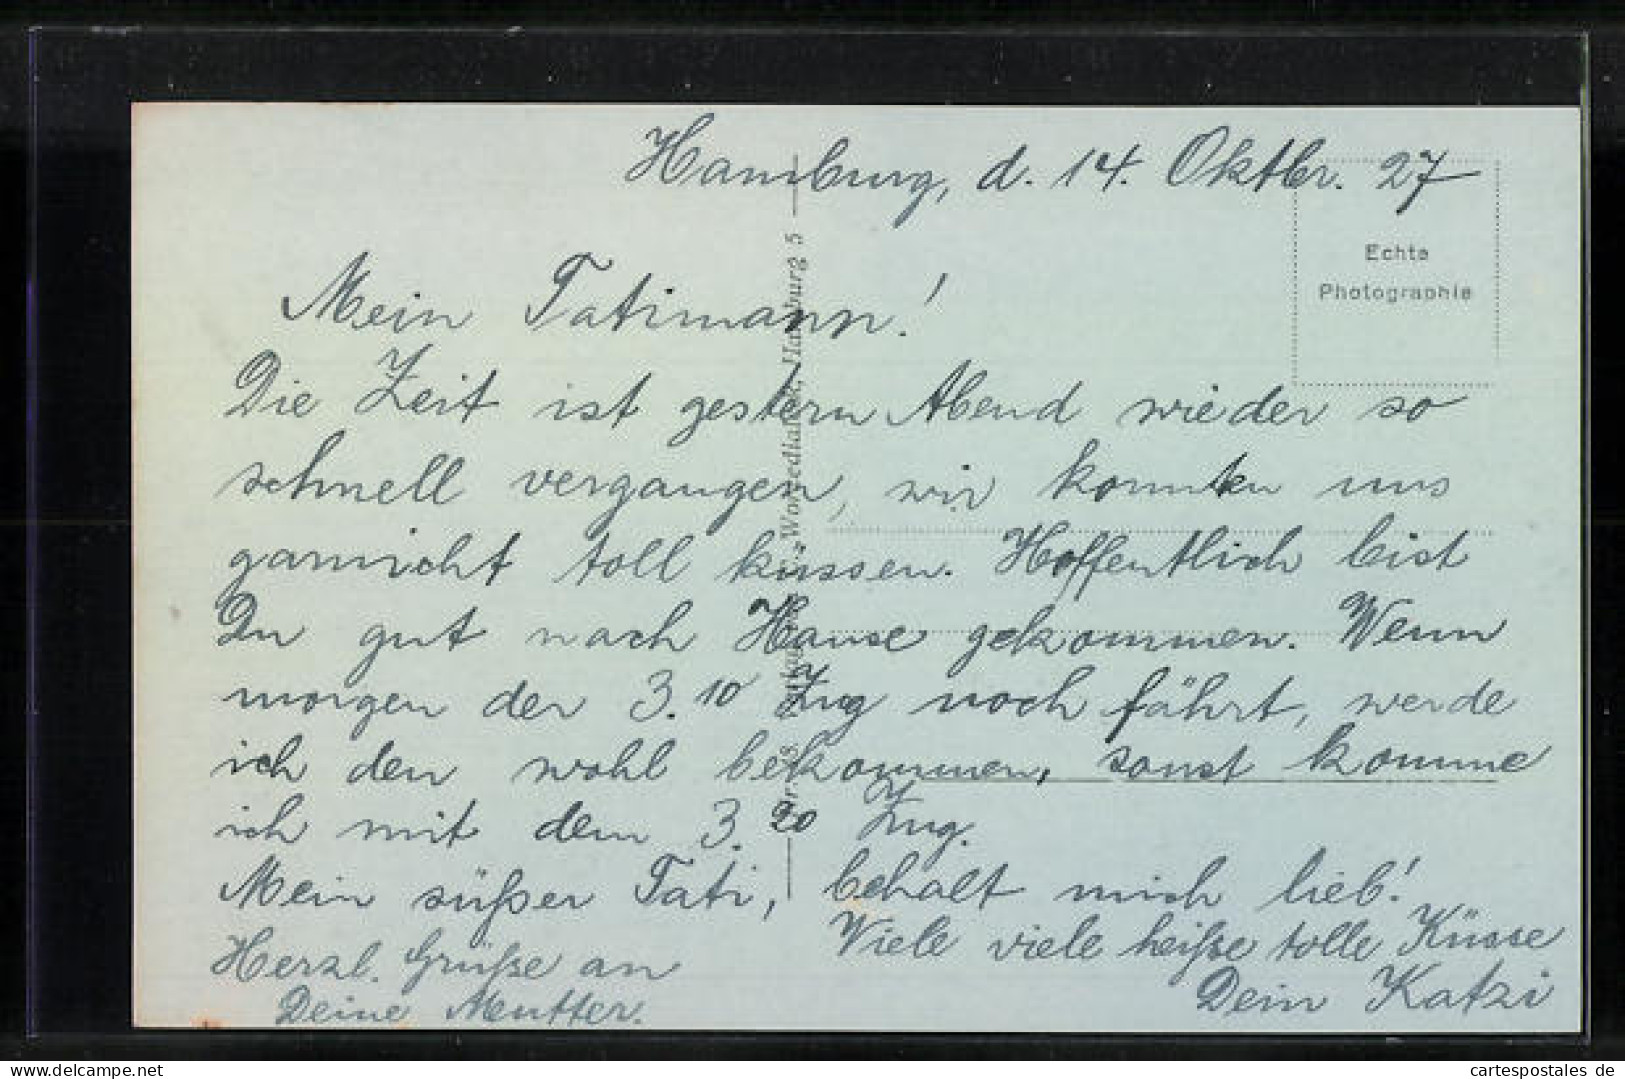 Hamburg, d. 14. Oktbr. 27
Echte
Photographie
Mein Tatimann!
Die Zeit ist gestern Abend wieder so
schnell vergangen, wir konnten uns
garnicht toll küssen. Hoffentlich bist
Du gut nach Hause gekommen. Wenn
morgen der 3.10 Zug noch fährt, werde
ich den wohl bekommen, sonst komme
ich mit dem 3.20 Zug.
Mein süßer Tati, behalt mich lieb!
Viele viele heiße tolle Küsse
Dein Katzi
Herzl. Grüße an
Deine Mutter.
Hamburg 5
www.cartespostales.eu
cartespostales de